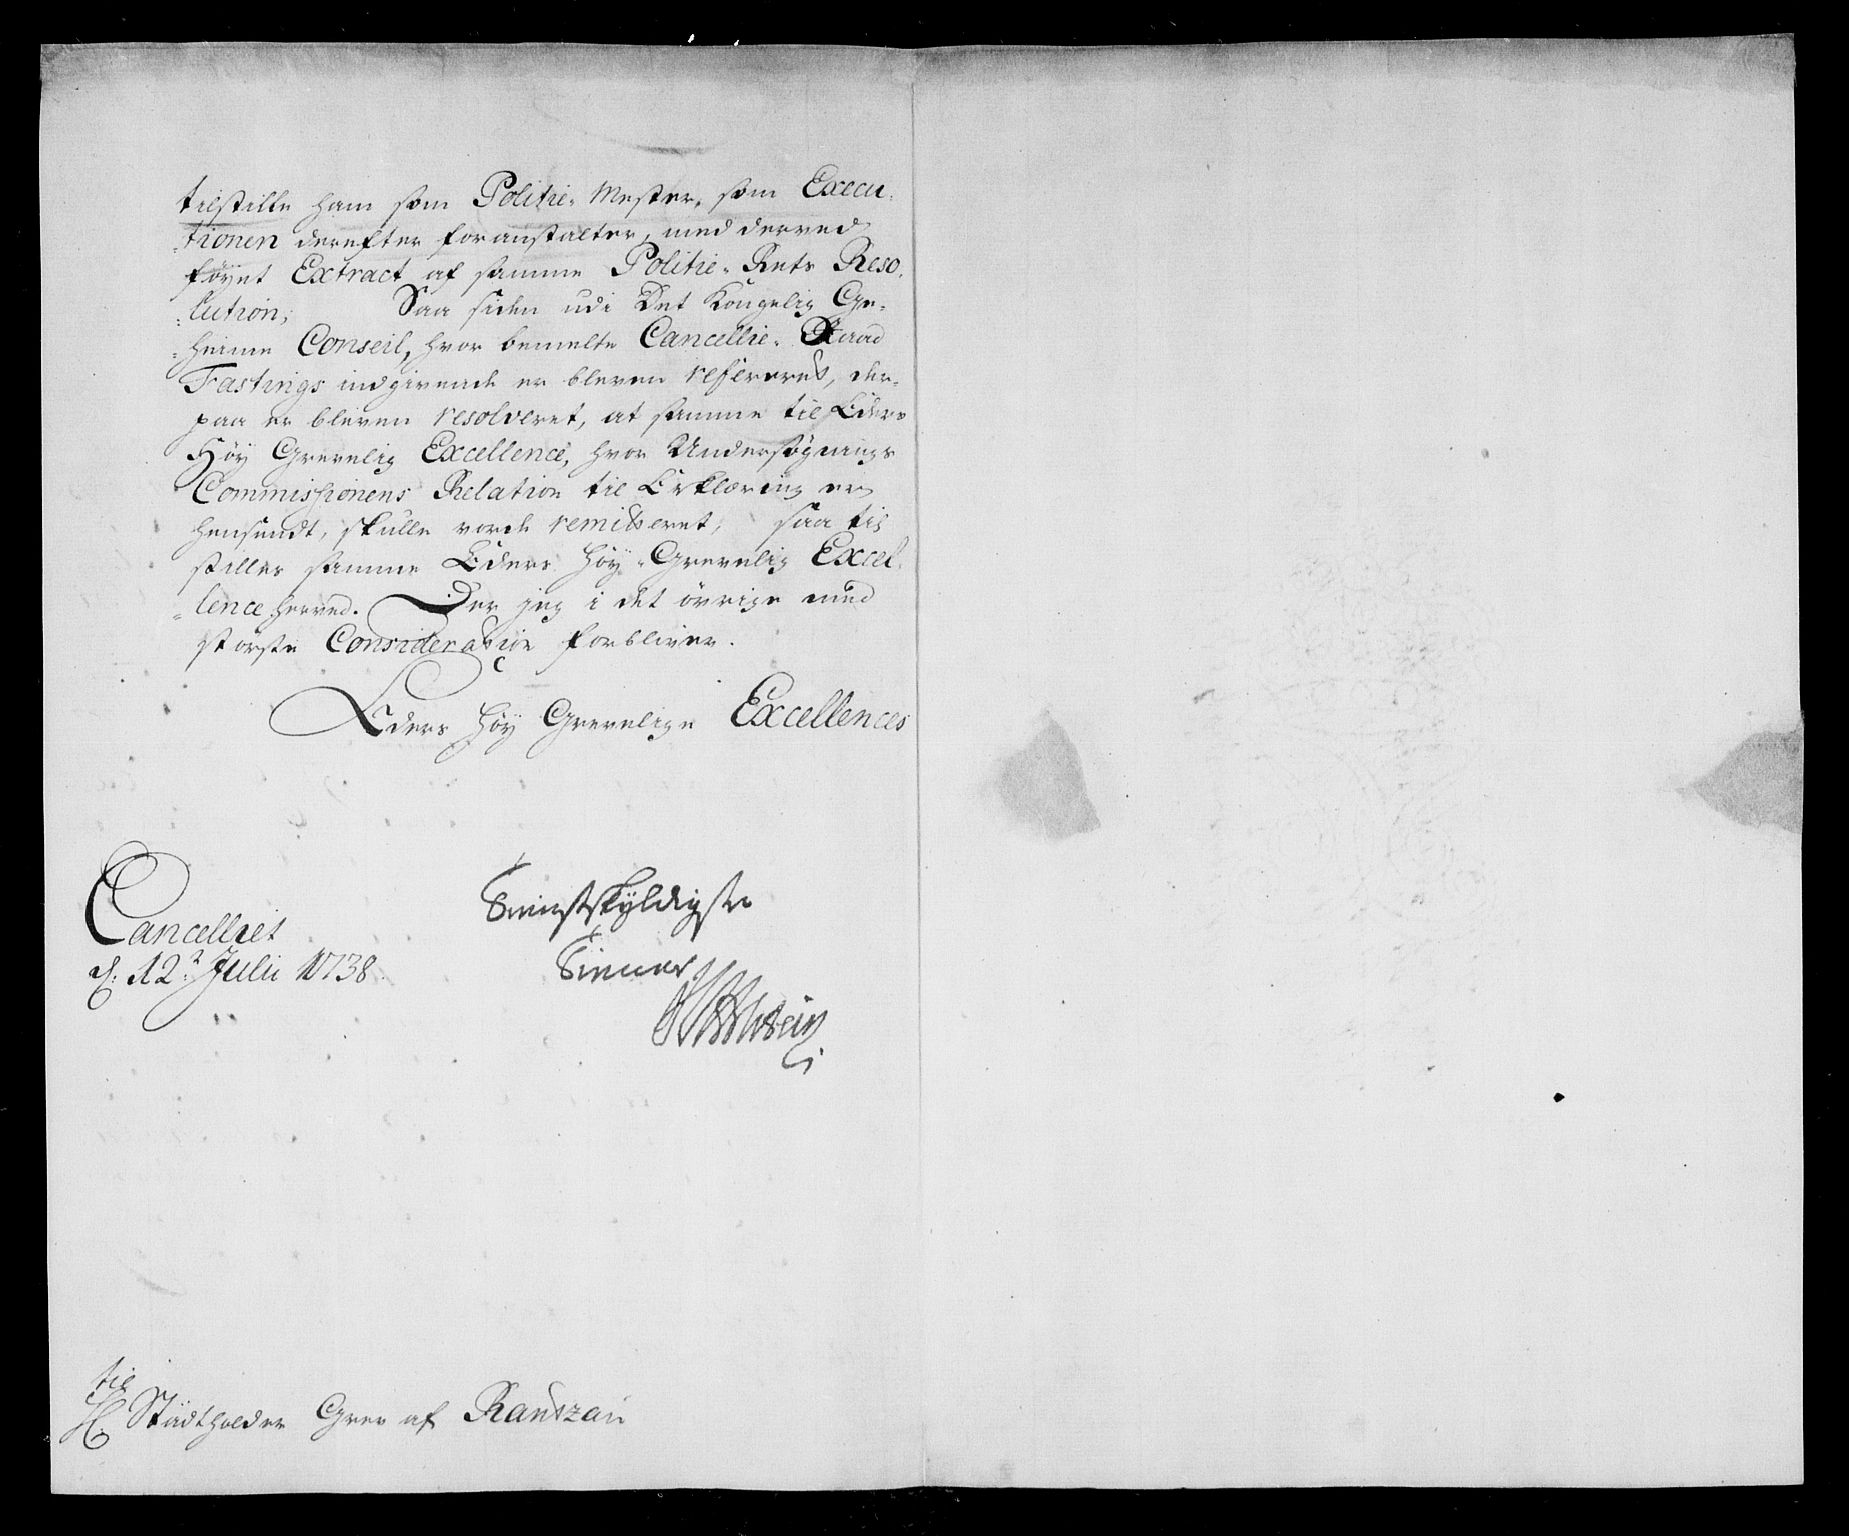 tilstille ham som Politie-Mester, som Execu-
tionen derefter foranstalter, med derved
føyet Extract af samme Politie-Rets Reso-
lution; Saa siden udi Det Kongelig Ge-
heime Conseil, hvor bemelte Cancellie-Raad
Fastings indgivende er bleven refereret, der-
paa er bleven resolveret, at samme til Eders
Høy Grevelig Excellence, hvor Undersøgnings
Commissionens Relation til Erklæring er
hensendt, skulle vorde remitteret; saa til
stilles samme Eders Høy-Grevelig Excel-
lence herved. Der jeg i det øvrige med
største Consideration forbliver.
Eders Høy Grevelige Excellences
Cancelliet
d. 12. Julii 1738
Tienstskyldigste
Tiener
til
H. Stadtholder Grev af Rantzau